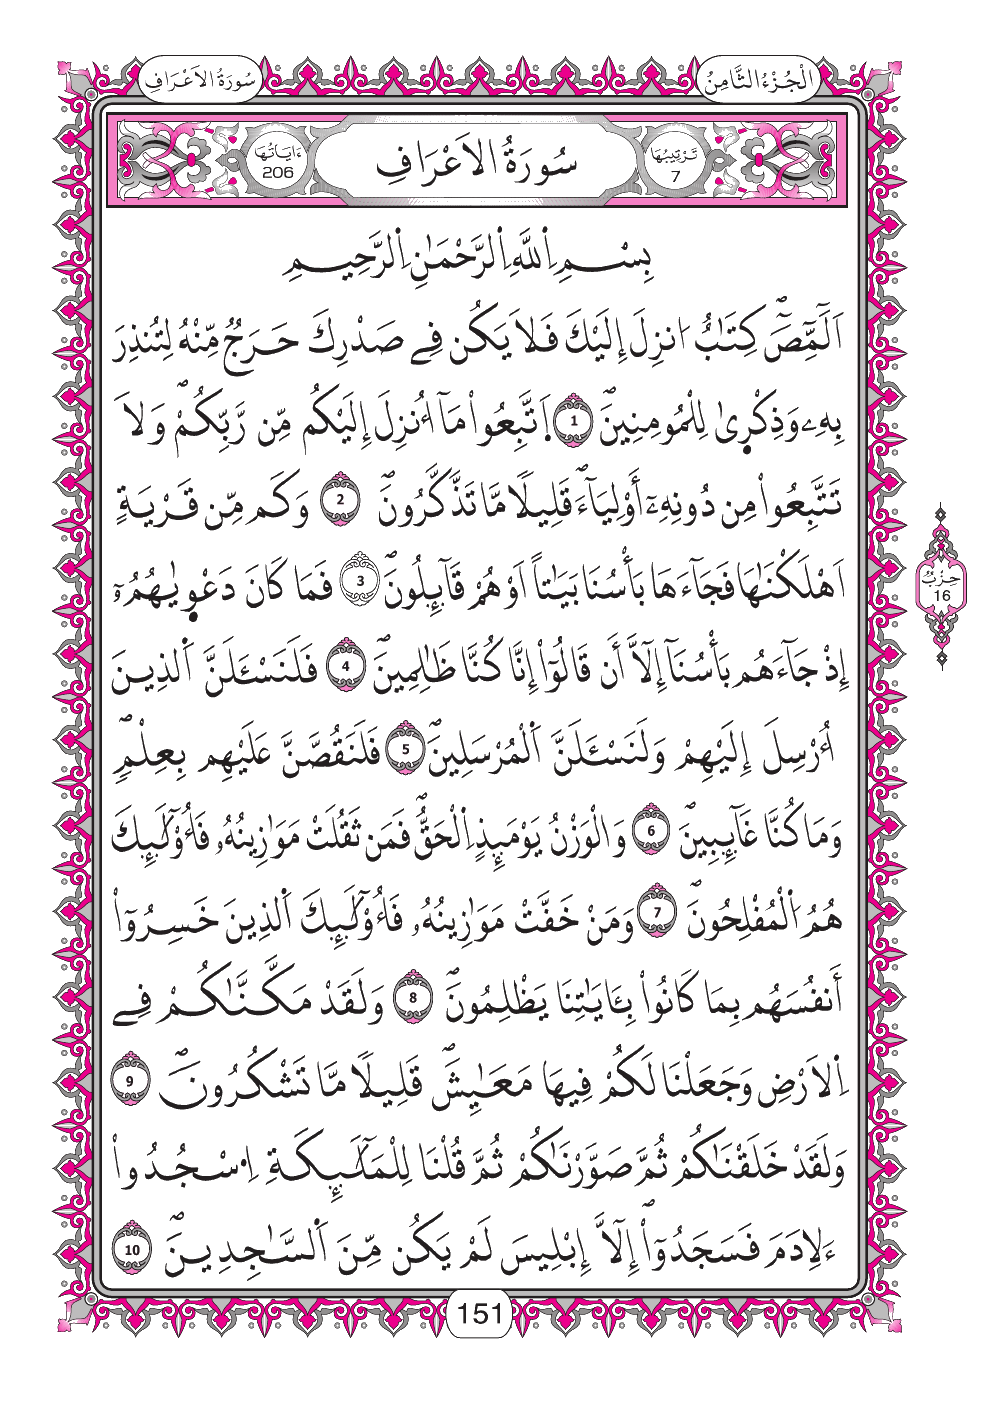 الْجُزْءُ الثَّامِنُ
سُورَةُ الَاعْرَافِ
تَرْتِيبُهَا 7
سُورَةُ الَاعْرَافِ
ءَايَاتُهَا 206
بِسْمِ اِ۬للَّهِ اِ۬لرَّحْمَٰنِ اِ۬لرَّحِيمِ
أَلَٓمِّٓصَٓۖ كِتَٰبٌ ا۟نزِلَ إِلَيْكَ فَلَا يَكُن فِے صَدْرِكَ حَرَجٌ مِّنْهُ لِتُنذِرَ
بِهِۦ وَذِكْر۪يٰ لِلْمُومِنِينَۖ 1 اَ۪تَّبِعُواْ مَآ أُنزِلَ إِلَيْكُم مِّن رَّبِّكُمْۖ وَلَا
تَتَّبِعُواْ مِن دُونِهِۦٓ أَوْلِيَآءَۖ قَلِيلًا مَّا تَذَّكَّرُونَۖ 2 وَكَم مِّن قَرْيَةٍ
اَهْلَكْنَٰهَا فَجَآءَهَا بَأْسُنَا بَيَٰتاً اَوْ هُمْ قَآئِلُونَۖ 3 فَمَا كَانَ دَعْو۪يٰهُمُۥٓ
إِذْ جَآءَهُم بَأْسُنَآ إِلَّآ أَن قَالُوٓاْ إِنَّا كُنَّا ظَٰلِمِينَۖ 4 فَلَنَسْـَٔلَنَّ اَ۬لذِينَ
أُرْسِلَ إِلَيْهِمْ وَلَنَسْـَٔلَنَّ اَ۬لْمُرْسَلِينَۖ 5 فَلَنَقُصَّنَّ عَلَيْهِم بِعِلْمٖۖ
وَمَا كُنَّا غَآئِبِينَۖ 6 وَالْوَزْنُ يَوْمَئِذٍ اِ۬لْحَقُّۖ فَمَن ثَقُلَتْ مَوَٰزِينُهُۥ فَأُوْلَٰٓئِكَ
هُمُ اُ۬لْمُفْلِحُونَۖ 7 وَمَنْ خَفَّتْ مَوَٰزِينُهُۥ فَأُوْلَٰٓئِكَ اَ۬لذِينَ خَسِرُوٓاْ
أَنفُسَهُم بِمَا كَانُواْ بِـَٔايَٰتِنَا يَظْلِمُونَۖ 8 وَلَقَدْ مَكَّنَّٰكُمْ فِے
اِ۬لَارْضِ وَجَعَلْنَا لَكُمْ فِيهَا مَعَٰيِشَۖ قَلِيلًا مَّا تَشْكُرُونَۖ 9
وَلَقَدْ خَلَقْنَٰكُمْ ثُمَّ صَوَّرْنَٰكُمْ ثُمَّ قُلْنَا لِلْمَلَٰٓئِكَةِ اِ۟سْجُدُواْ
ءَلِادَمَ فَسَجَدُوٓاْۖ إِلَّآ إِبْلِيسَ لَمْ يَكُن مِّنَ اَ۬لسَّٰجِدِينَۖ 10
حِزْبُ
16
151